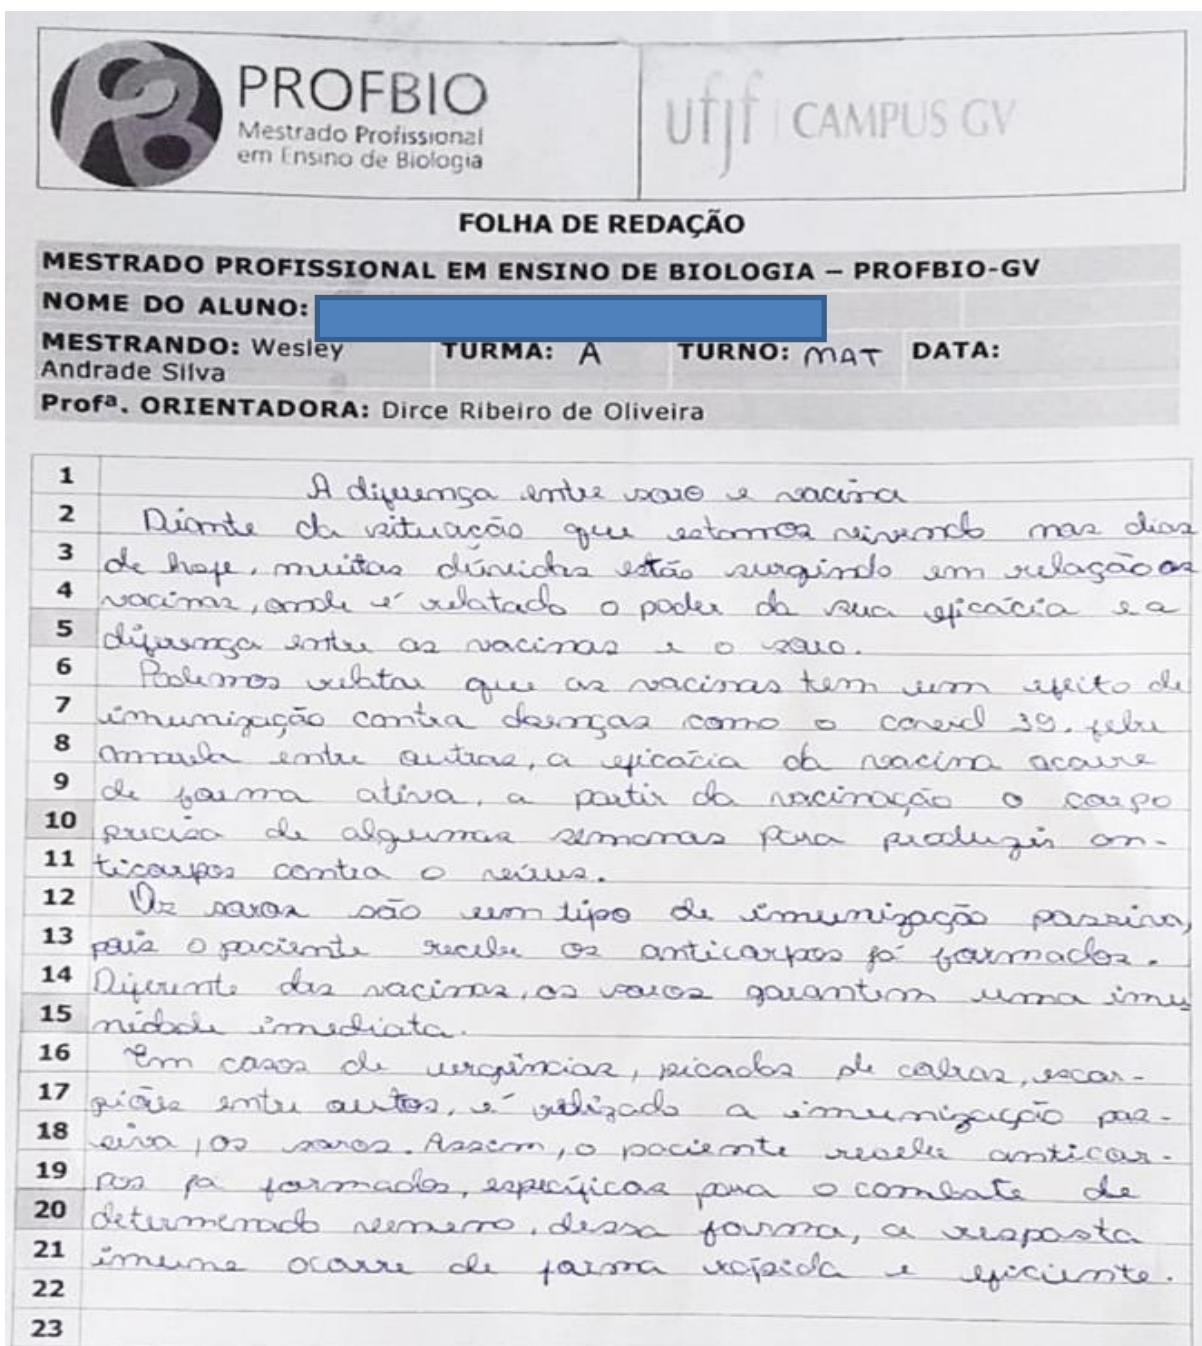 PROFBIO
Mestrado Profissional
em Ensino de Biologia
ufjf | CAMPUS GV
FOLHA DE REDAÇÃO
MESTRADO PROFISSIONAL EM ENSINO DE BIOLOGIA – PROFBIO-GV
NOME DO ALUNO:
MESTRANDO: Wesley Andrade Silva TURMA: A TURNO: MAT DATA:
Profª. ORIENTADORA: Dirce Ribeiro de Oliveira
1 A diferença entre soro e vacina
2 Diante da situação que estamos vivendo nos dias
3 de hoje, muitas dúvidas estão surgindo em relação as
4 vacinas, onde é relatado o poder da sua eficácia e a
5 diferença entre as vacinas e o soro.
6 Podemos relatar que as vacinas tem um efeito de
7 imunização contra doenças como o covid 19, febre
8 amarela entre outras, a eficácia da vacina ocorre
9 de forma ativa, a partir da vacinação o corpo
10 precisa de algumas semanas para produzir an-
11 ticorpos contra o vírus.
12 Os soros são um tipo de imunização passiva,
13 pois o paciente recebe os anticorpos já formados.
14 Diferente das vacinas, os soros garantem uma imu
15 nidade imediata.
16 Em casos de urgências, picadas de cobras, escor-
17 piões entre outos, é relizado a imunização pas-
18 siva, os soros. Assim, o paciente recebe anticor-
19 pos já formados, específicos para o combate de
20 determinado veneno, dessa forma, a resposta
21 imune ocorre de forma rápida e eficiente.
22
23